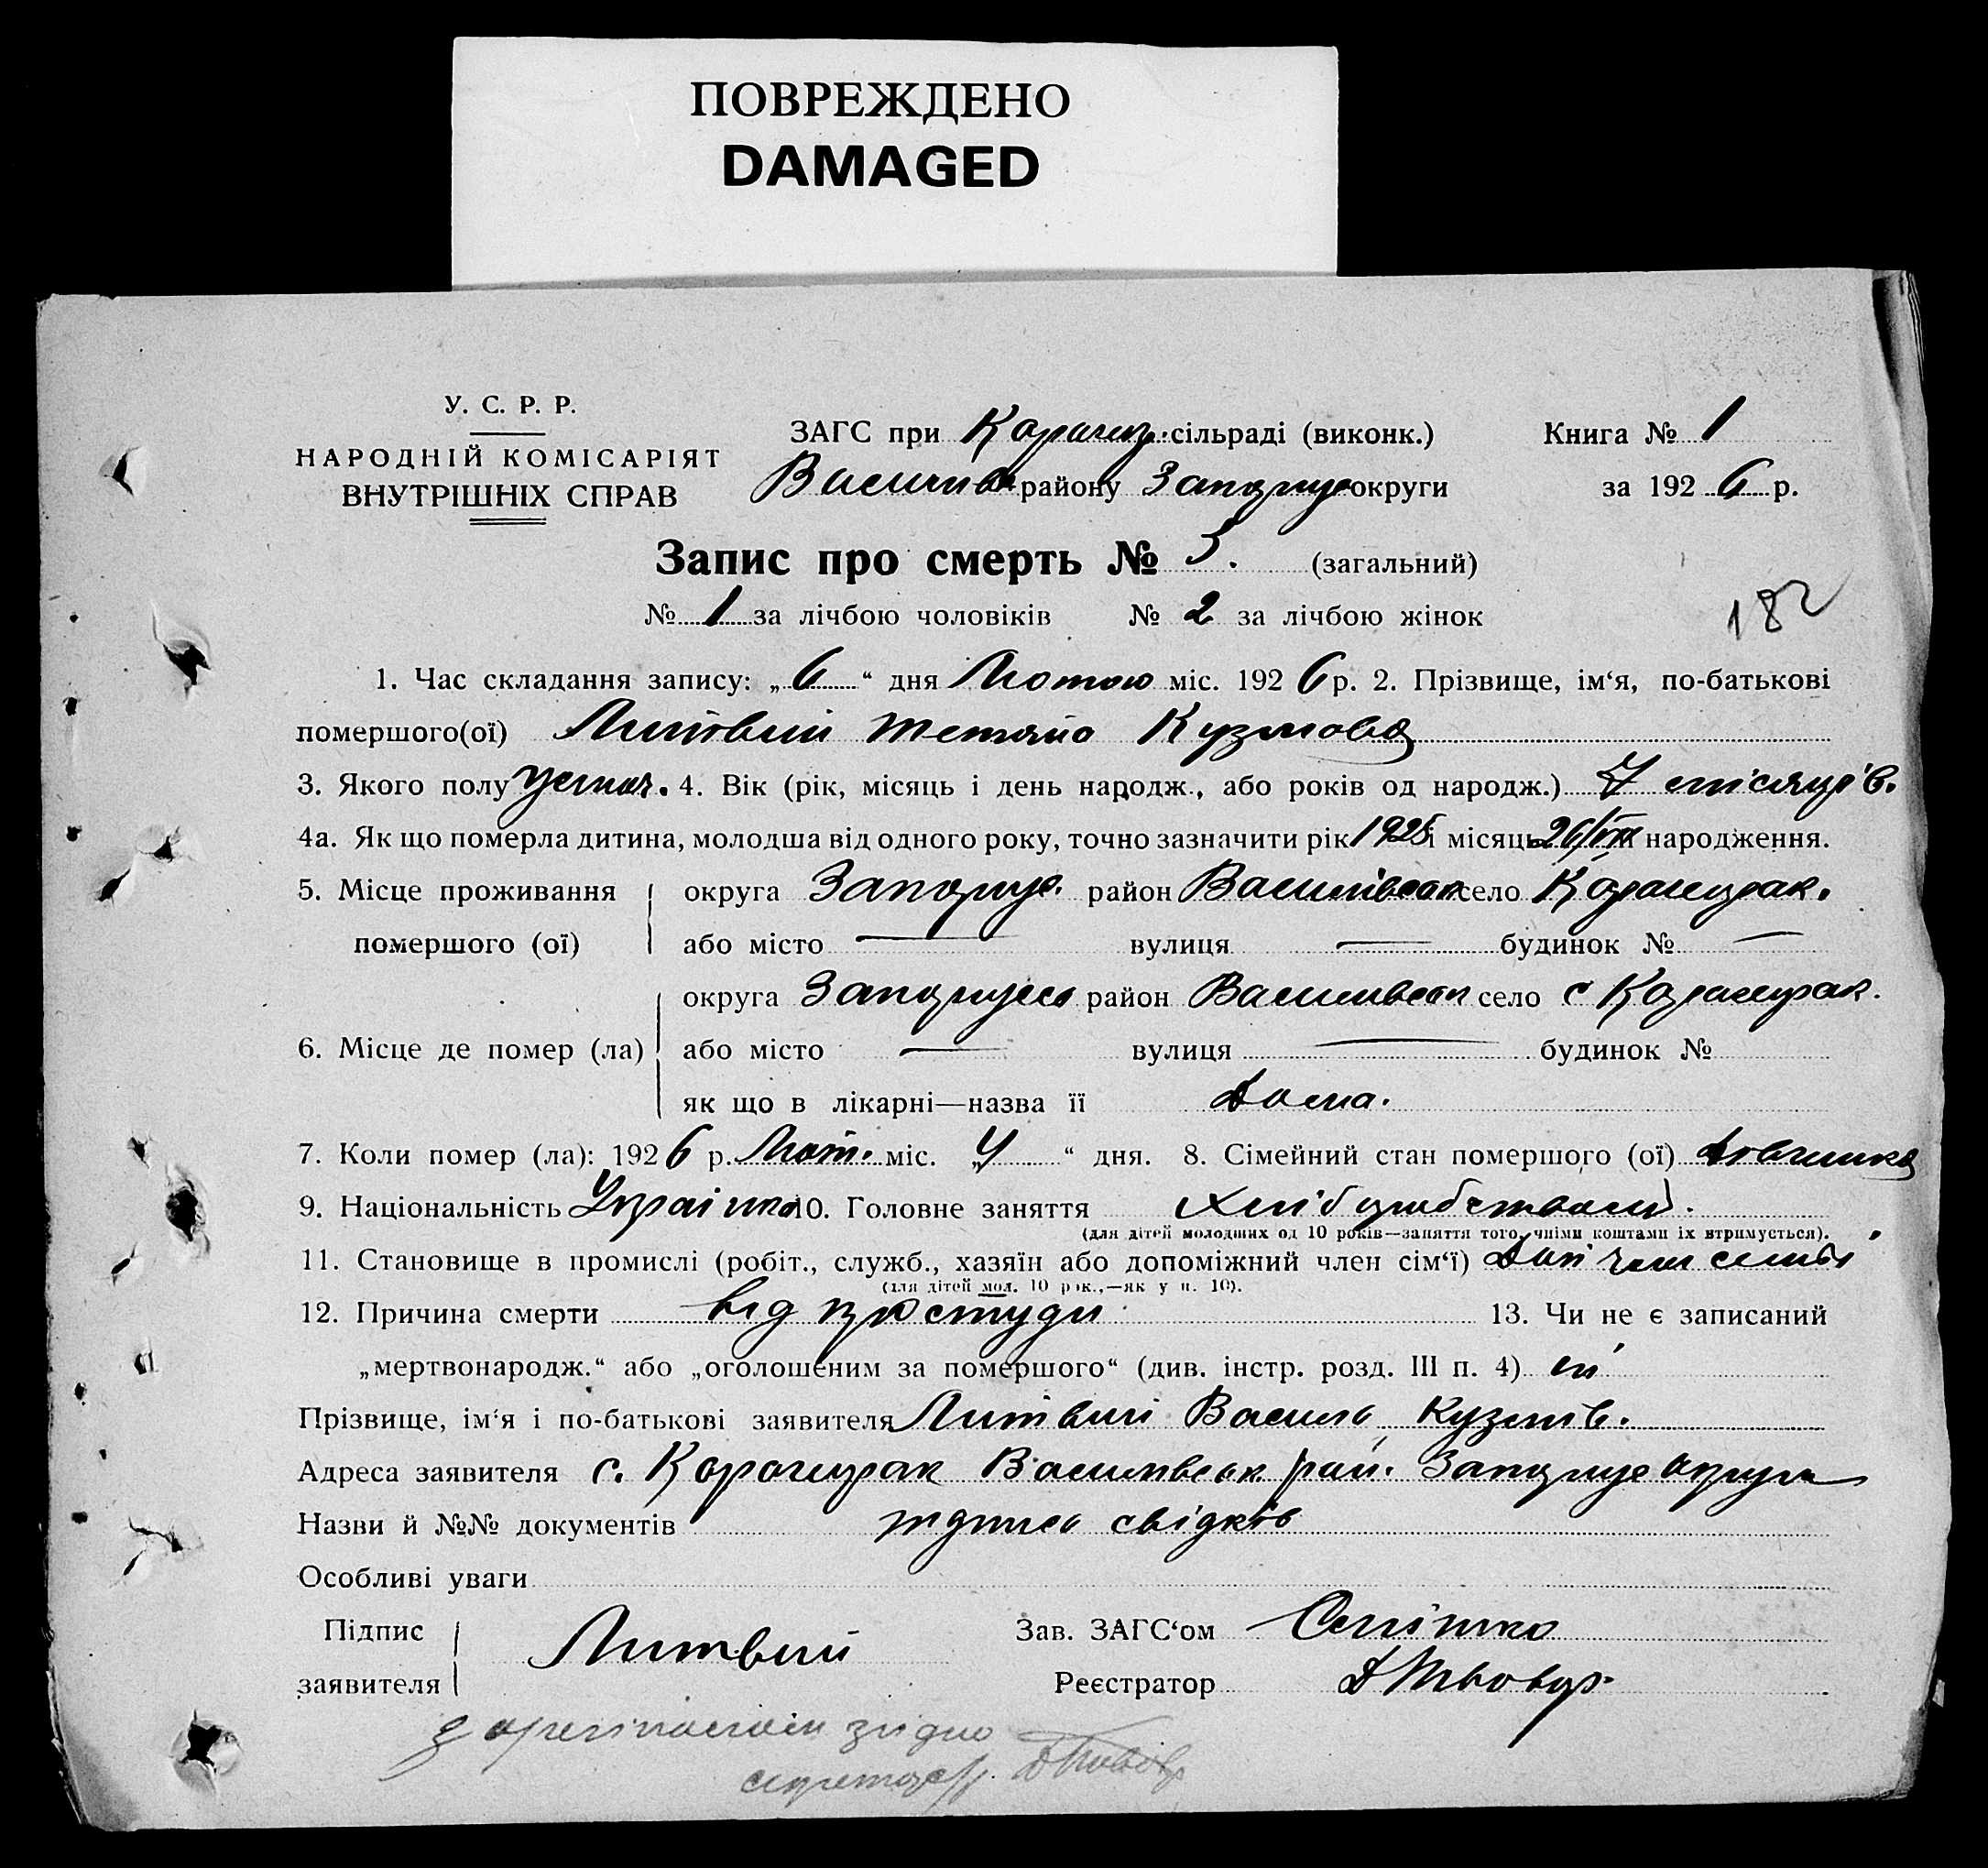 ПОВРЕЖДЕНО
DAMAGED
У. С. Р. Р.
НАРОДНІЙ КОМІСАРІЯТ
ВНУТРІШНІХ СПРАВ
ЗАГС при сільраді (виконк.) Книга № 1
району округи за 1926 р.
Запис про смерть № 3. (загальний)
№ 1 за лічбою чоловіків № 2 за лічбою жінок
182
1. Час складання запису: „6“ дня Лютого міс. 1926 р. 2. Прізвище, ім‘я, по-батькові
помершого(ої) Литвин Тетяна Кузмова
3. Якого полу 4. Вік (рік, місяць і день народж., або років од народж.) 7 місяців.
4а. Як що померла дитина, молодша від одного року, точно зазначити рік 1925 і місяць народження.
5. Місце проживання округа Запоріж. район Василівськ село
помершого (ої) або місто — вулиця — будинок № —
округа район Василівськ село с
6. Місце де помер (ла) або місто — вулиця — будинок №
як що в лікарні—назва її Дома.
7. Коли помер (ла): 1926 р. Лют. міс. „4“ дня. 8. Сімейний стан помершого (ої) дівчинка
9. Національність Українка 10. Головне заняття Хліборобством.
(для дітей молодших од 10 років—заняття того, чиїми коштами їх втримується).
11. Становище в промислі (робіт., служб., хазяїн або допоміжний член сім‘ї) Доп член семьї
(для дітей мол. 10 рок.,—як у п. 10).
12. Причина смерти від простуди 13. Чи не є записаний
„мертвонародж.“ або „оголошеним за помершого“ (див. інстр. розд. III п. 4) ні
Прізвище, ім‘я і по-батькові заявителя Литвин Василь Кузмів.
Адреса заявителя с. Василівськ рай. округи
Назви й №№ документів свідків
Особливі уваги
Підпис Литвин Зав. ЗАГС‘ом
заявителя Реєстратор
з оригіналом згідно
секретар